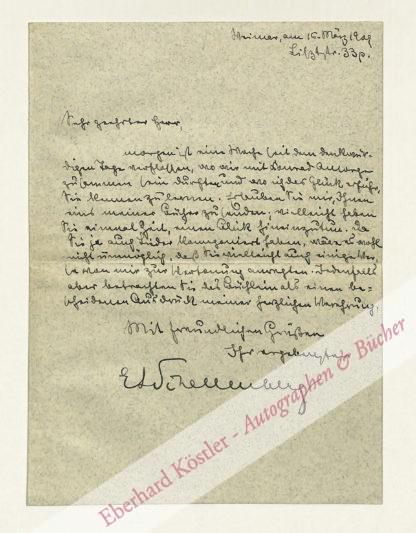 Weimar, am 16. März 1909
Lisztstr. 33 p.
Sehr geehrter Herr,
morgen ist eine Woche seit dem denkwür-
digen Tage verflossen, wo wir mit Konrad Ansorge
zusammen sein durften und wo ich das Glück erfuhr,
Sie kennen zu lernen. Erlauben Sie mir, Ihnen
eins meiner Bücher zu senden; vielleicht haben
Sie einmal Zeit, einen Blick hineinzutun. Da
Sie ja auch Lieder komponiert haben, wäre es wohl
nicht unmöglich, daß Sie vielleicht auch einige
zur Vertonung anregten. Jedenfalls
aber betrachten Sie das Büchlein als einen be-
scheidenen Ausdruck meiner herzlichen Verehrung.
Mit freundlichen Grüßen
Ihr ergebenster
E L Schellenberg
Eberhard Köstler - Autographen & Bücher